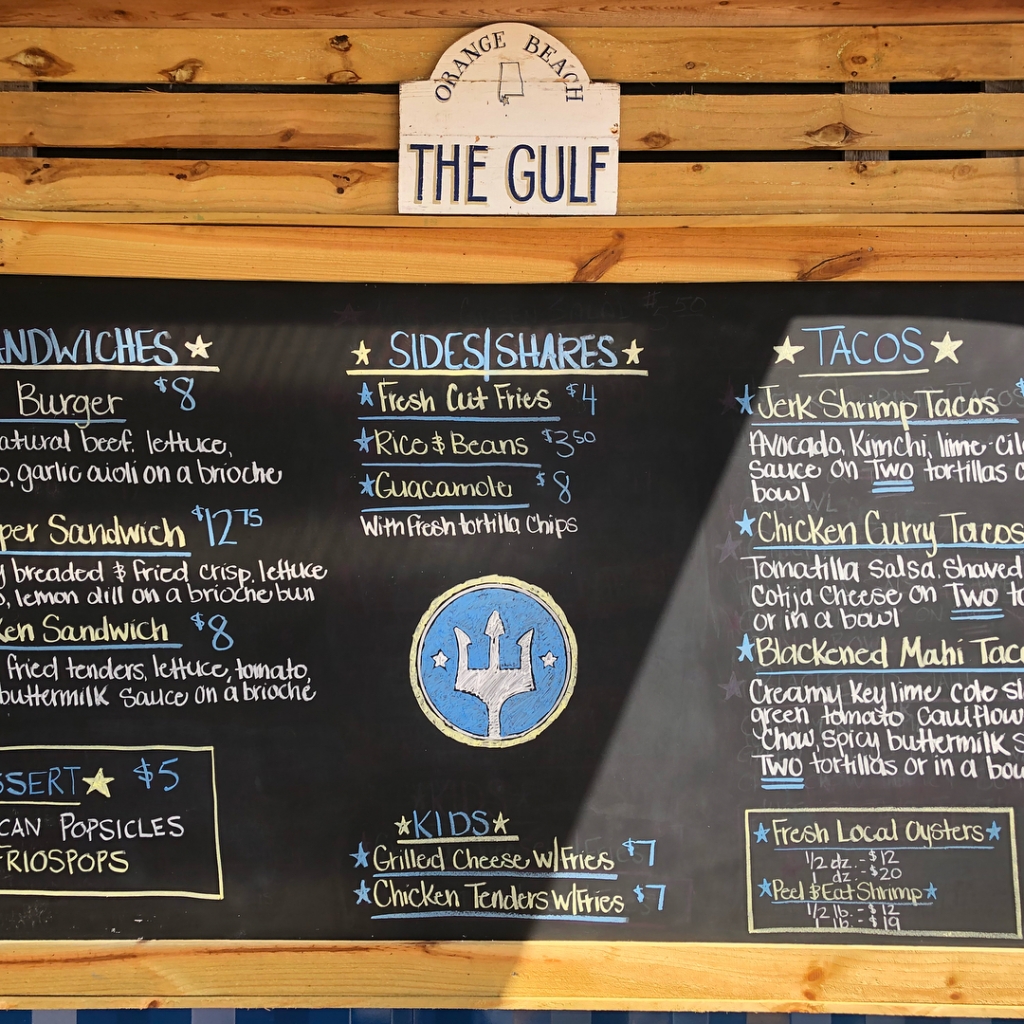 ORANGE BEACH
THE GULF
NDWICHES
Burger $8
atural beef. lettuce,
garlic aioli on a brioche
per Sandwich $12.75
breaded & fried crisp, lettuce
lemon dill on a brioche bun
ken Sandwich $8
fried tenders, lettuce, tomato,
buttermilk Sauce on a brioche
SSERT $5
CAN POPSICLES
FRIOSPOPS
SIDES/SHARES
Fresh Cut Fries $4
Rice & Beans $3.50
Guacamole $8
With fresh tortilla Chips
KIDS
Grilled Cheese W/Fries $7
Chicken Tenders W/Fries $7
TACOS
Jerk Shrimp Tacos
Avocado, Kimchi, lime-cil
Sauce on Two tortillas o
bowl
Chicken Curry Tacos
Tomatilla Salsa. Shaved
Cotija Cheese on Two to
or in a bowl
Blackened Mahi Taco
Creamy Key lime cole sl
green tomato Cauliflow
Chow Spicy buttermilk S
Two tortillas or in a bow
Fresh Local Oysters
1/2 dz. - $12
1 dz. - $20
Peel & Eat Shrimp
1/2 lb. - $12
1 lb. - $19